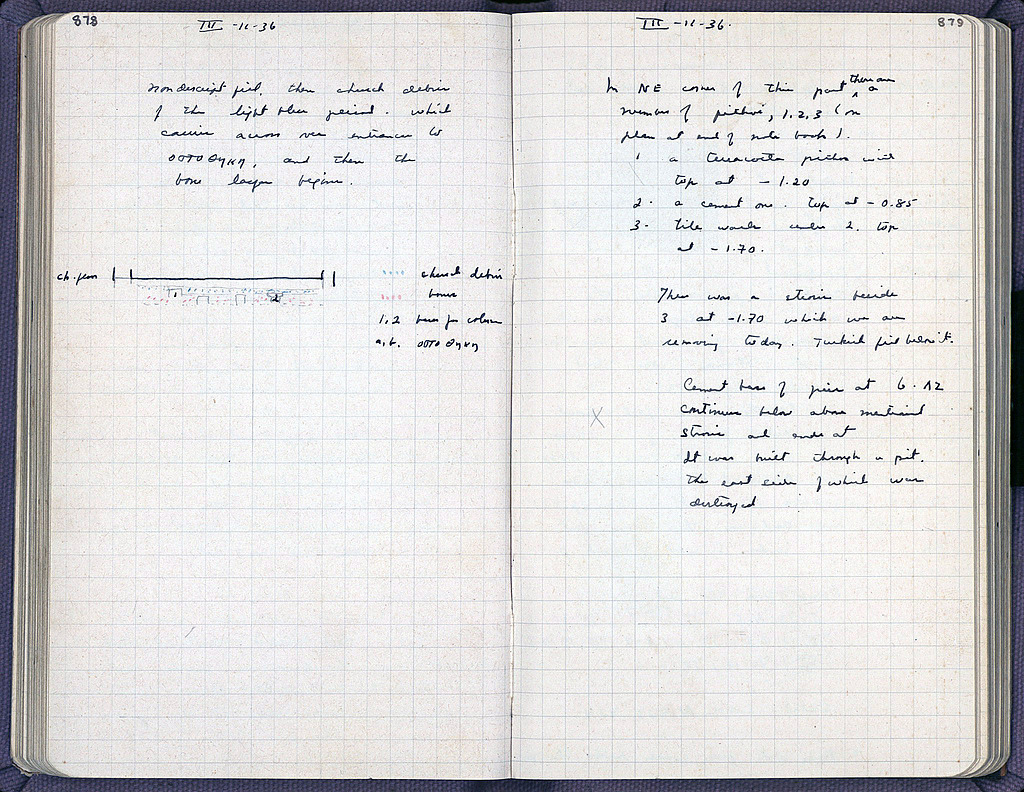 878
III -11-36
nondescript fill, then church debris
of the light blue period. which
carries across over entrance to
οστοθηκη, and then the
bone layer begins.
ch. floor
church debris
bones
1, 2 bases for column
a, b. οστοθηκη
1
2
III -11-36.
879
In NE corner of this part there are a
number of pithoi, 1, 2, 3 (on
plan at end of note book).
1 a terracotta pithos with
top at - 1.20
2. a cement one. top at - 0.85
3. tile under 2. top
at - 1.70.
There was a strosis beside
3 at -1.70 which we are
removing today. Turkish fill below it.
Cement base of pier at 6.ΛΖ
X
continues below above mentioned
strosis and ends at
It was built through a pit.
The east side of which was
destroyed